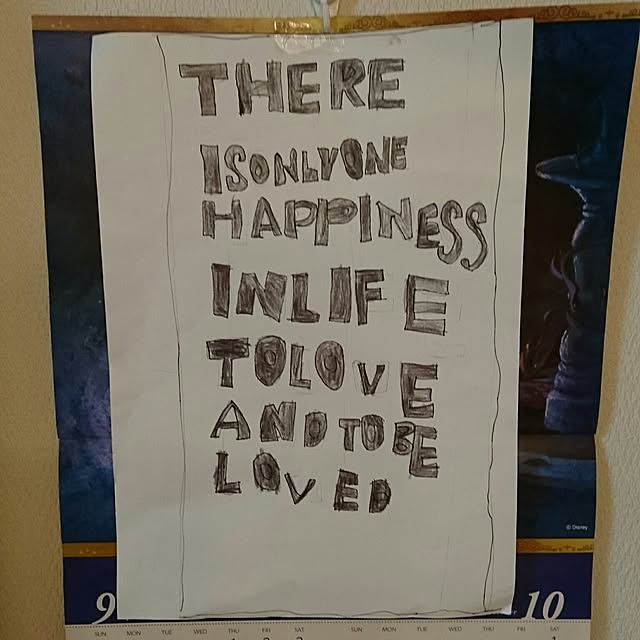 THERE
ISONLYONE
HAPPINESS
INLIFE
TOLOVE
ANDTOBE
LOVED
© Disney
9 10
SUN MON TUE WED THU FRI SAT SUN MON TUE WED THU FRI SAT